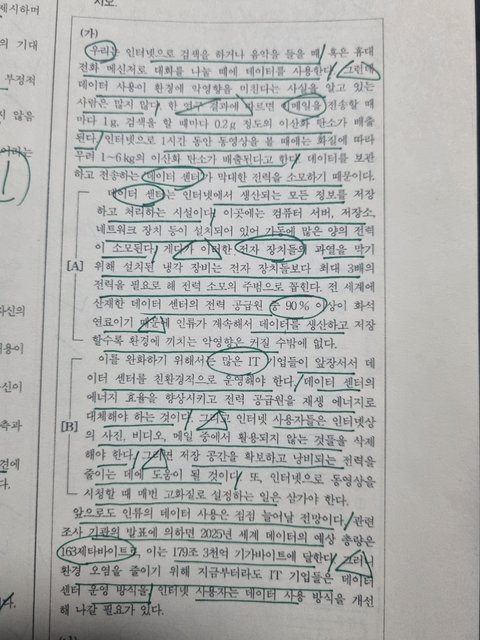 시오.
제시하며
의 기대
부정적
지 않음
(가)
우리는 인터넷으로 검색을 하거나 음악을 들을 때, 혹은 휴대
전화 메신저로 대화를 나눌 때에 데이터를 사용한다. 그런데
데이터 사용이 환경에 악영향을 미친다는 사실을 알고 있는
사람은 많지 않다. 한 연구 결과에 따르면 메일을 전송할 때
마다 1g, 검색을 할 때마다 0.2g 정도의 이산화 탄소가 배출
된다. 인터넷으로 1시간 동안 동영상을 볼 때에는 화질에 따라
무려 1~6kg의 이산화 탄소가 배출된다고 한다. 데이터를 보관
하고 전송하는 데이터 센터가 막대한 전력을 소모하기 때문이다.
데이터 센터는 인터넷에서 생산되는 모든 정보를 저장
하고 처리하는 시설이다. 이곳에는 컴퓨터 서버, 저장소,
네트워크 장치 등이 설치되어 있어 가동에 많은 양의 전력
이 소모된다. 게다가 이러한 전자 장치들의 과열을 막기
[A] 위해 설치된 냉각 장비는 전자 장치들보다 최대 3배의
전력을 필요로 해 전력 소모의 주범으로 꼽힌다. 전 세계에
산재한 데이터 센터의 전력 공급원 중 90% 이상이 화석
연료이기 때문에 인류가 계속해서 데이터를 생산하고 저장
할수록 환경에 끼치는 악영향은 커질 수밖에 없다.
이를 완화하기 위해서는 많은 IT 기업들이 앞장서서 데
이터 센터를 친환경적으로 운영해야 한다. 데이터 센터의
에너지 효율을 향상시키고 전력 공급원을 재생 에너지로
대체해야 하는 것이다. 그리고 인터넷 사용자들은 인터넷상
[B] 의 사진, 비디오, 메일 중에서 활용되지 않는 것들을 삭제
해야 한다. 그러면 저장 공간을 확보하고 낭비되는 전력을
줄이는 데에 도움이 될 것이다. 또, 인터넷으로 동영상을
시청할 때 매번 고화질로 설정하는 일은 삼가야 한다.
앞으로도 인류의 데이터 사용은 점점 늘어날 전망이다. 관련
조사 기관의 발표에 의하면 2025년 세계 데이터의 예상 총량은
163제타바이트로, 이는 179조 3천억 기가바이트에 달한다. 그러니
환경 오염을 줄이기 위해 지금부터라도 IT 기업들은 데이터
센터 운영 방식을, 인터넷 사용자는 데이터 사용 방식을 개선
해 나갈 필요가 있다.